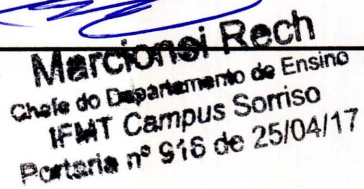 Marcionei Rech
Chefe do Departamento de Ensino
IFMT Campus Sorriso
Portaria nº 916 de 25/04/17